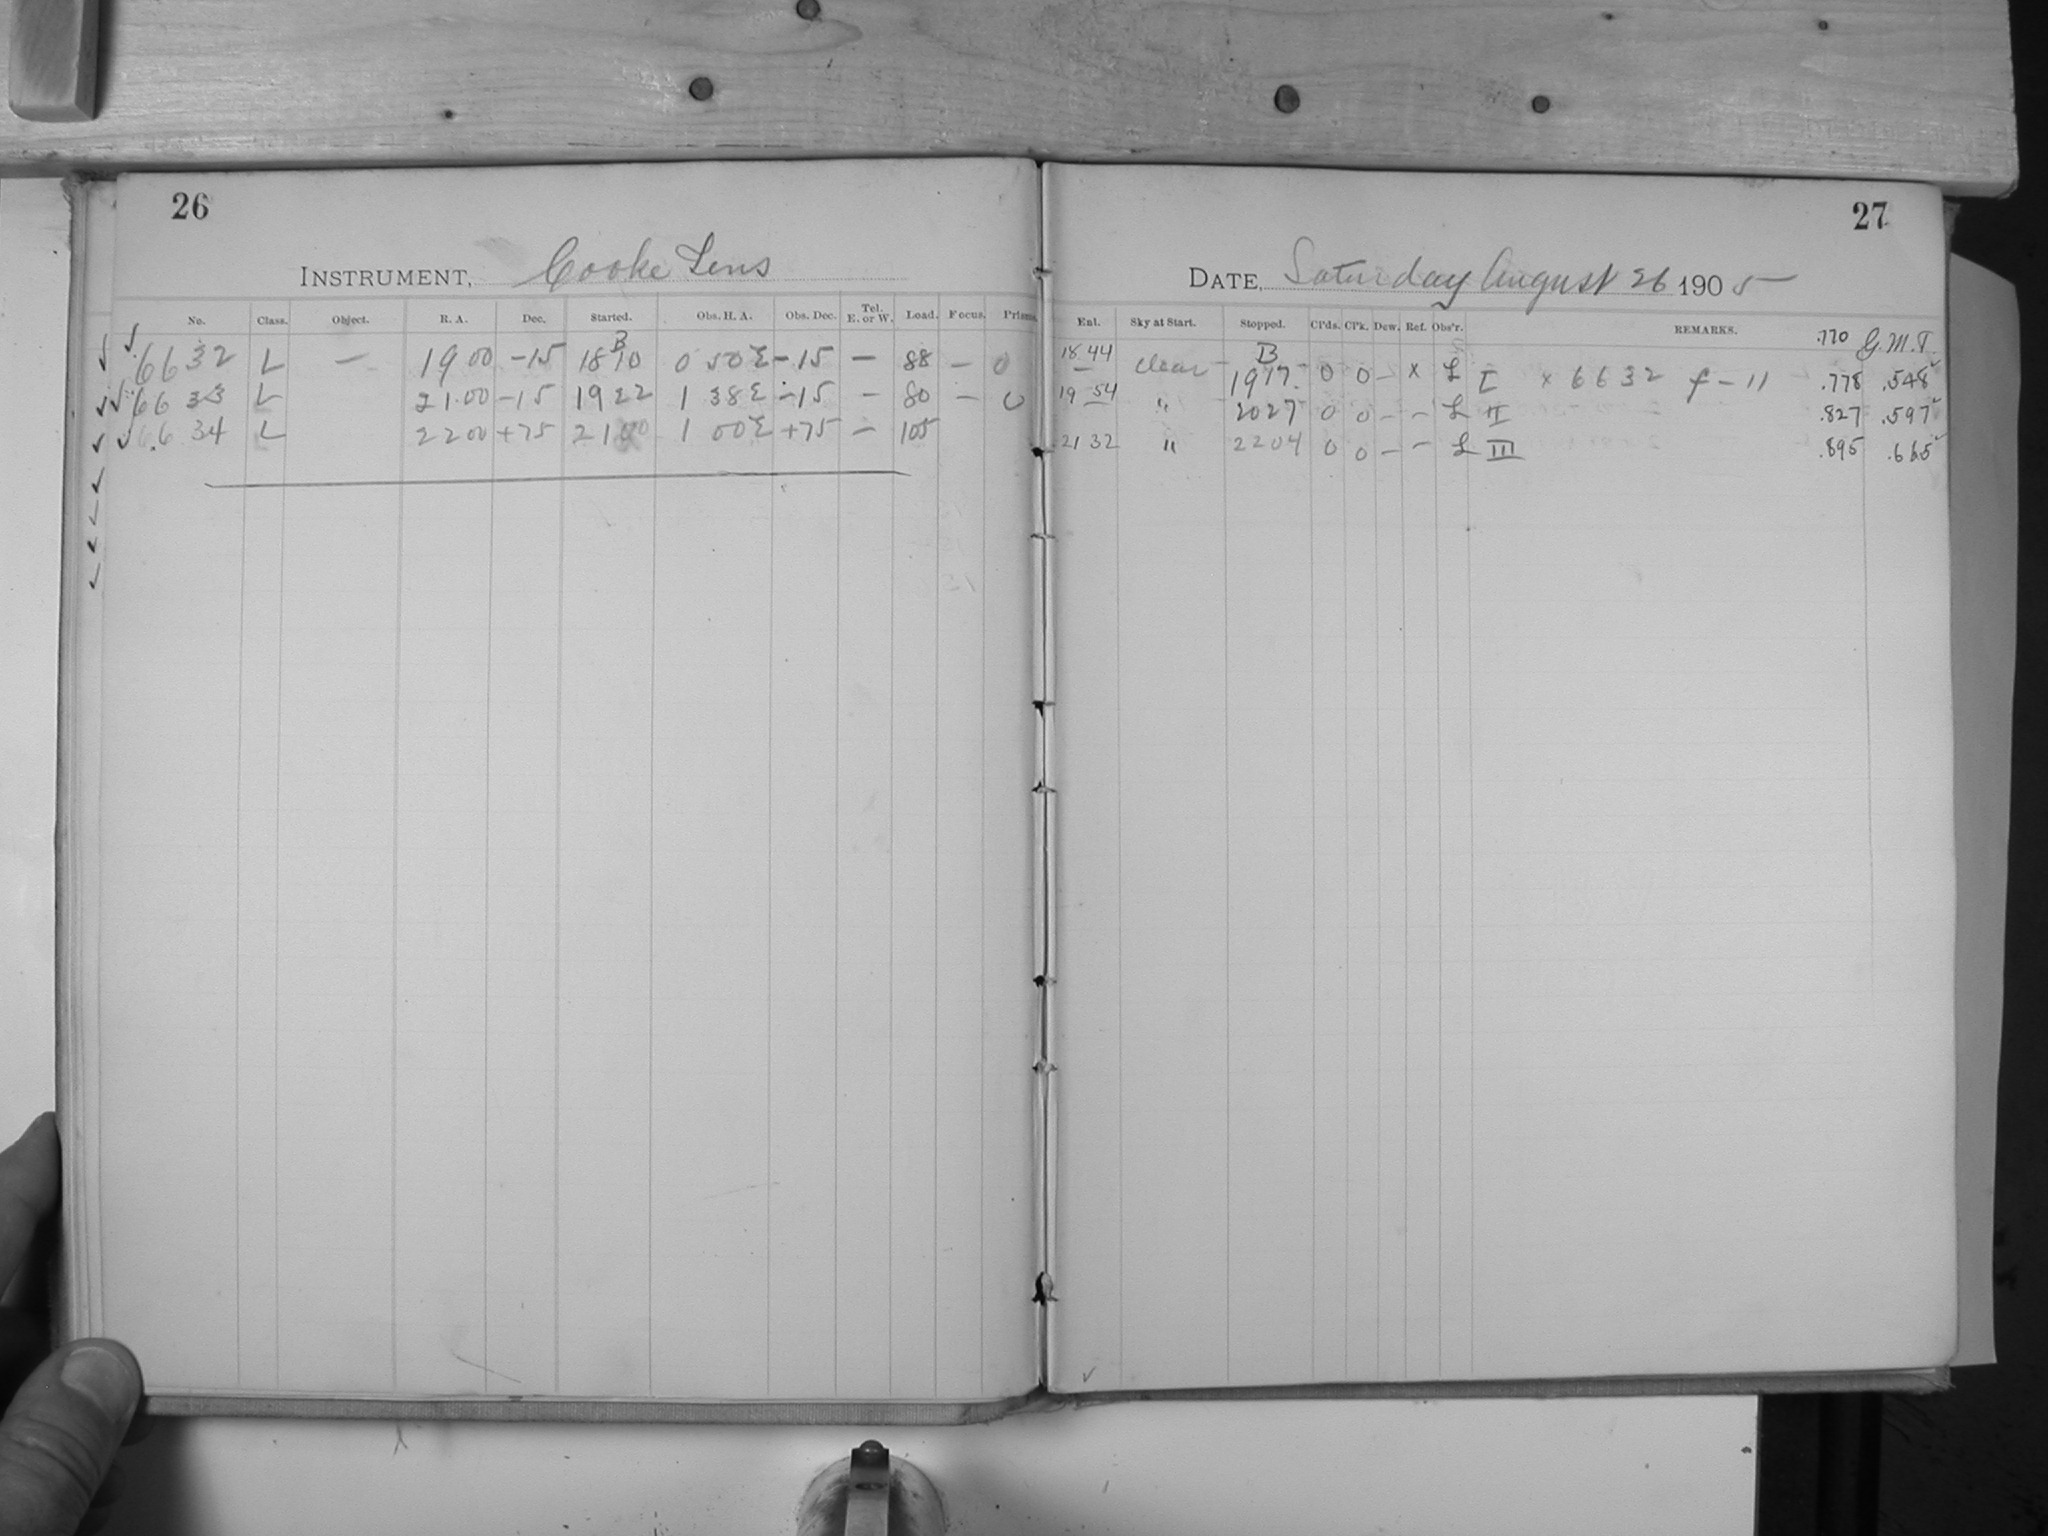 26
INSTRUMENT, Cooke Lens
No. Class. Object. R. A. Dec. Started. Obs. H. A. Obs. Dec. Tel. E. or W. Load. Focus. Prisms.
B
6632 L — 19 00 -15 18 10 0 50 E -15 — 88 — 0
6633 L 21 00 -15 19 22 1 38 E -15 — 80 — 0
6634 L 22 00 +75 21 00 1 00 E +75 — 105
27
DATE, Saturday August 26 1905
Ent. Sky at Start. Stopped. Cl'ds. Cl'k. Dew. Ref. Obs'r. REMARKS. .770 G.M.T.
B
18 44 clear 19 17 0 0 — x L I x 6632 f - 11 .778 .548
19 54 " 20 27 0 0 — — L II .827 .597
21 32 " 22 04 0 0 — — L III .895 .665